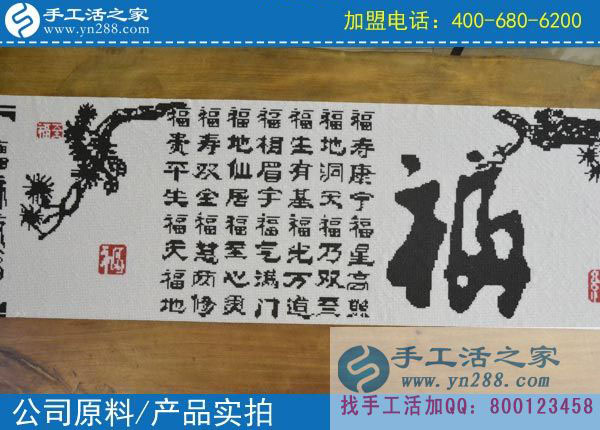 手工活之家
www.yn288.com
加盟电话：400-680-6200
福
福寿康宁福星高照
福地洞天福乃双至
福生有基福光万道
福相眉宇福气满门
福地仙居福至心灵
福寿双全福慧两修
福贵平生福天福地
手工活之家
www.yn288.com
找手工活加QQ：800123458
公司原料/产品实拍